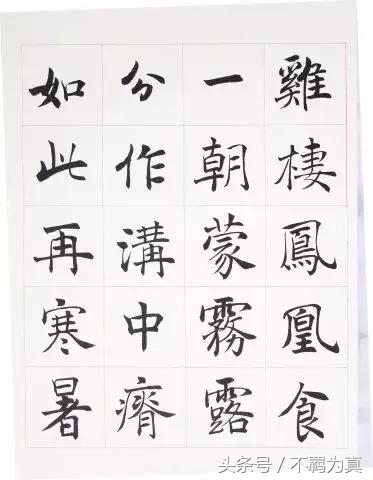 雞棲鳳凰食
一朝蒙霧露
分作溝中瘠
如此再寒暑
头条号/不羁为真